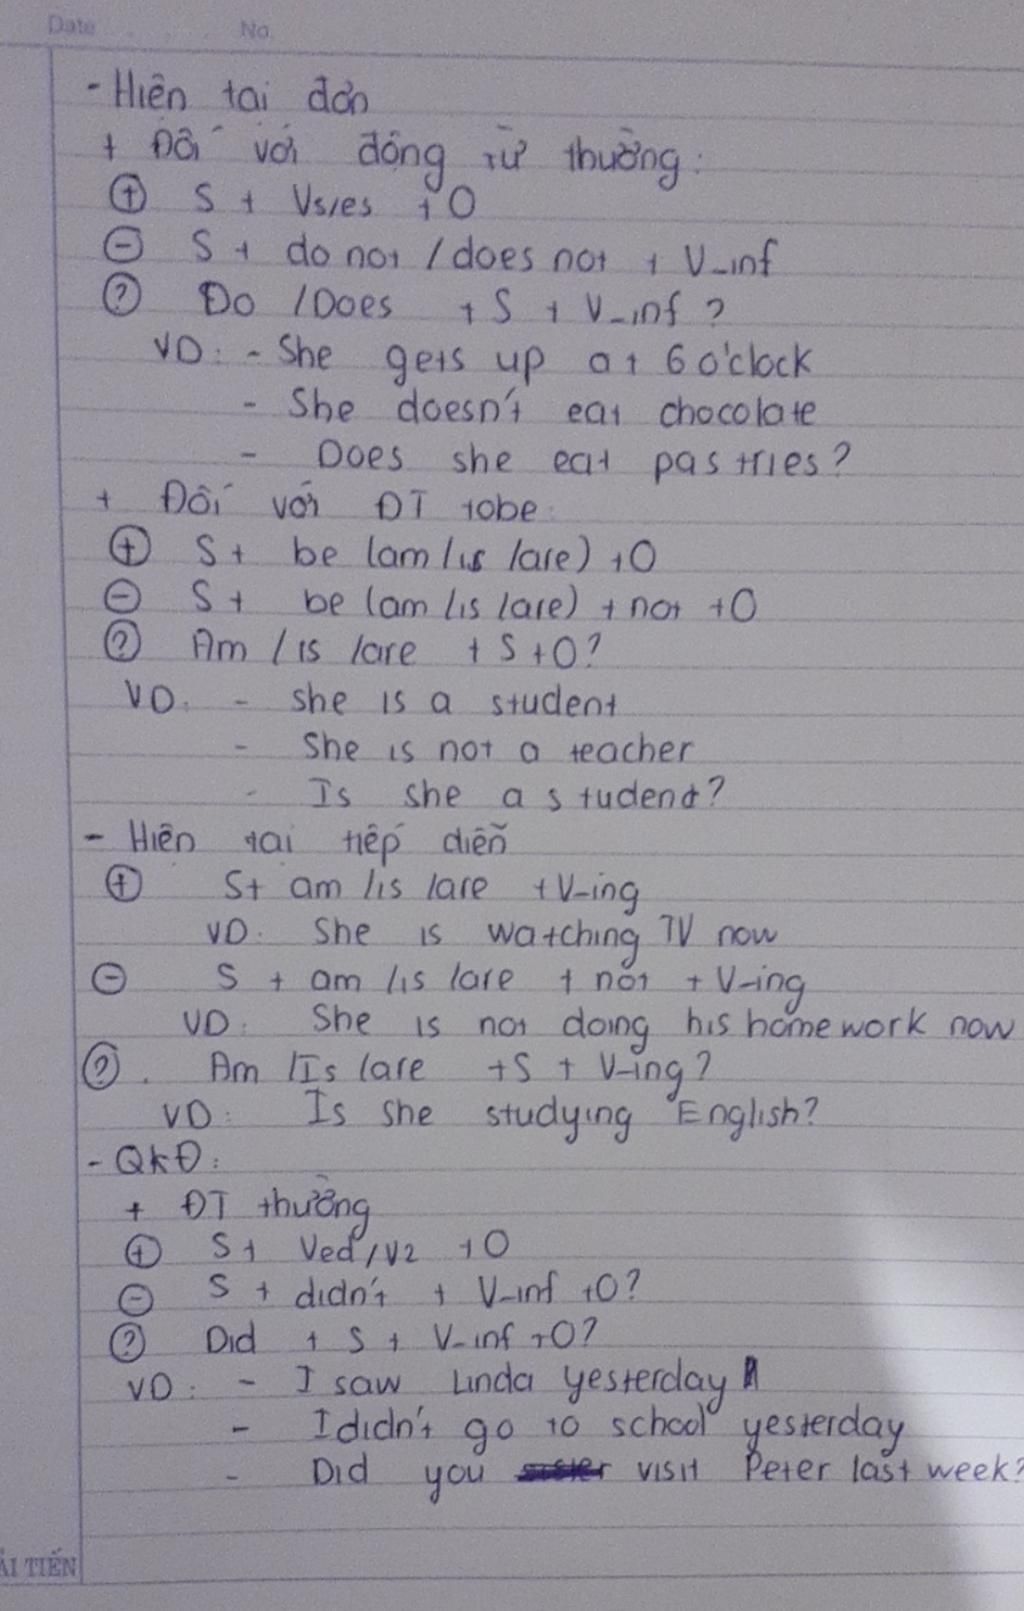 Date No.
- Hiện tại đơn
+ Đối với động từ thường:
⊕ S + Vs/es + O
⊖ S + do not / does not + V_inf
? Do / Does + S + V_inf ?
VD: - She gets up at 6 o'clock
- She doesn't eat chocolate
- Does she eat pastries?
+ Đối với ĐT tobe:
⊕ S + be (am / is / are) + O
⊖ S + be (am / is / are) + not + O
? Am / is / are + S + O?
VD: - she is a student
- She is not a teacher
- Is she a student?
- Hiện tại tiếp diễn
⊕ S + am / is / are + V-ing
VD: She is watching TV now
⊖ S + am / is / are + not + V-ing
VD: She is not doing his homework now
? Am / Is / are + S + V-ing?
VD: Is she studying English?
- QKĐ:
+ ĐT thường
⊕ S + Ved / V2 + O
⊖ S + didn't + V-inf + O?
? Did + S + V-inf + O?
VD: - I saw Linda yesterday
- I didn't go to school yesterday
- Did you visit Peter last week?
ẢI TIẾN